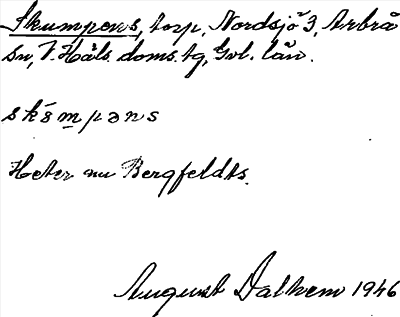 Skumpens, torp, Nordsjö 3, Arbrå
sn, V. Häls. doms. tg, Gvl. län.
skômpəns
Heter nu Bergfeldts.
August Dalhem 1946